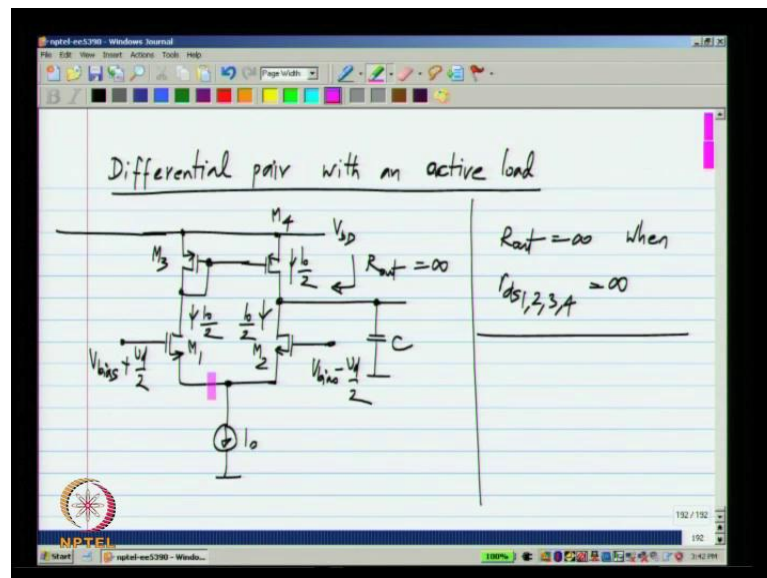 nptel-ee5390 - Windows Journal
File Edit View Insert Actions Tools Help
Page Width
B I
Differential pair with an active load
M4
VDD
M3
I0/2
Rout = ∞
I0/2
I0/2
M1
M2
C
Vbias + vd/2
Vbias - vd/2
I0
Rout = ∞ when
rds1,2,3,4 = ∞
192 / 192
192
NPTEL
Start
nptel-ee5390 - Windo...
100%
3:42 PM